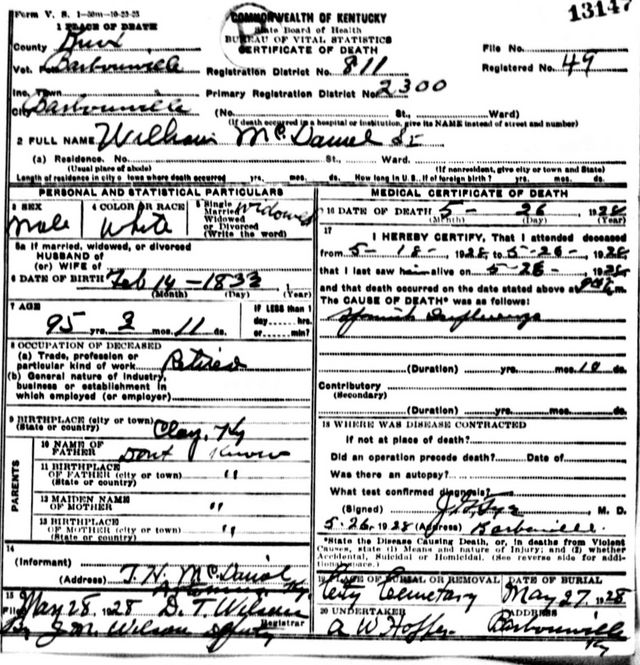 Form V. S. 1-50m-10-23-25
13147
1 PLACE OF DEATH
COMMONWEALTH OF KENTUCKY
State Board of Health
BUREAU OF VITAL STATISTICS
CERTIFICATE OF DEATH
County
File No.
Vot. Pct. Barbourville
Registration District No. 811
Registered No. 49
Inc. Town
Primary Registration District No. 2300
City Barbourville
(No. St., Ward)
(If death occurred in a hospital or institution, give its NAME instead of street and number)
2 FULL NAME William McDaniel Sr
(a) Residence. No. St., Ward.
(Usual place of abode) (If nonresident, give city or town and State)
Length of residence in city or town where death occurred yrs. mos. ds. How long in U. S., if of foreign birth? yrs. mos. ds.
PERSONAL AND STATISTICAL PARTICULARS
3 SEX
Male
4 COLOR OR RACE
White
5 Single
Married
Widowed
or Divorced
(Write the word)
Widowed
5a If married, widowed, or divorced
HUSBAND of
(or) WIFE of
6 DATE OF BIRTH Feb 14-1833
(Month) (Day) (Year)
7 AGE
95 yrs. 3 mos. 11 ds.
IF LESS than 1
day hrs.
or min?
8 OCCUPATION OF DECEASED
(a) Trade, profession or
particular kind of work Retired
(b) General nature of industry,
business or establishment in
which employed (or employer)
9 BIRTHPLACE (city or town)
(State or country) Clay, Ky
PARENTS
10 NAME OF
FATHER Dont Know
11 BIRTHPLACE
OF FATHER (city or town) "
(State or country)
12 MAIDEN NAME
OF MOTHER "
13 BIRTHPLACE
OF MOTHER (city or town) "
(State or country)
14
(Informant) T. N. McDaniel
(Address) Ky.
15
Filed May 28, 1928 D. T. Wilson
Registrar
By J. M. Wilson Deputy
MEDICAL CERTIFICATE OF DEATH
16 DATE OF DEATH 5- 26, 1928
(Month) (Day) (Year)
17
I HEREBY CERTIFY, That I attended deceased
from 5-18-, 1928 to 5-26-, 1928
that I last saw him alive on 5-26-, 1928
and that death occurred on the date stated above at m.
The CAUSE OF DEATH* was as follows:
Spanish Influenza
(Duration) yrs. mos. 10 ds.
Contributory
(Secondary)
(Duration) yrs. mos. ds.
18 WHERE WAS DISEASE CONTRACTED
If not at place of death?
Did an operation precede death? Date of
Was there an autopsy?
What test confirmed diagnosis?
(Signed) M. D.
5-26, 1928 (Address) Barbourville
*State the Disease Causing Death, or, in deaths from Violent
Causes, state (1) Means and nature of Injury; and (2) whether
Accidental, Suicidal or Homicidal. (See reverse side for addi-
tional space.)
19 PLACE OF BURIAL OR REMOVAL
City Cemetary
DATE OF BURIAL
May 27, 1928
20 UNDERTAKER
A W Hopper
ADDRESS
Barbourville
Ky